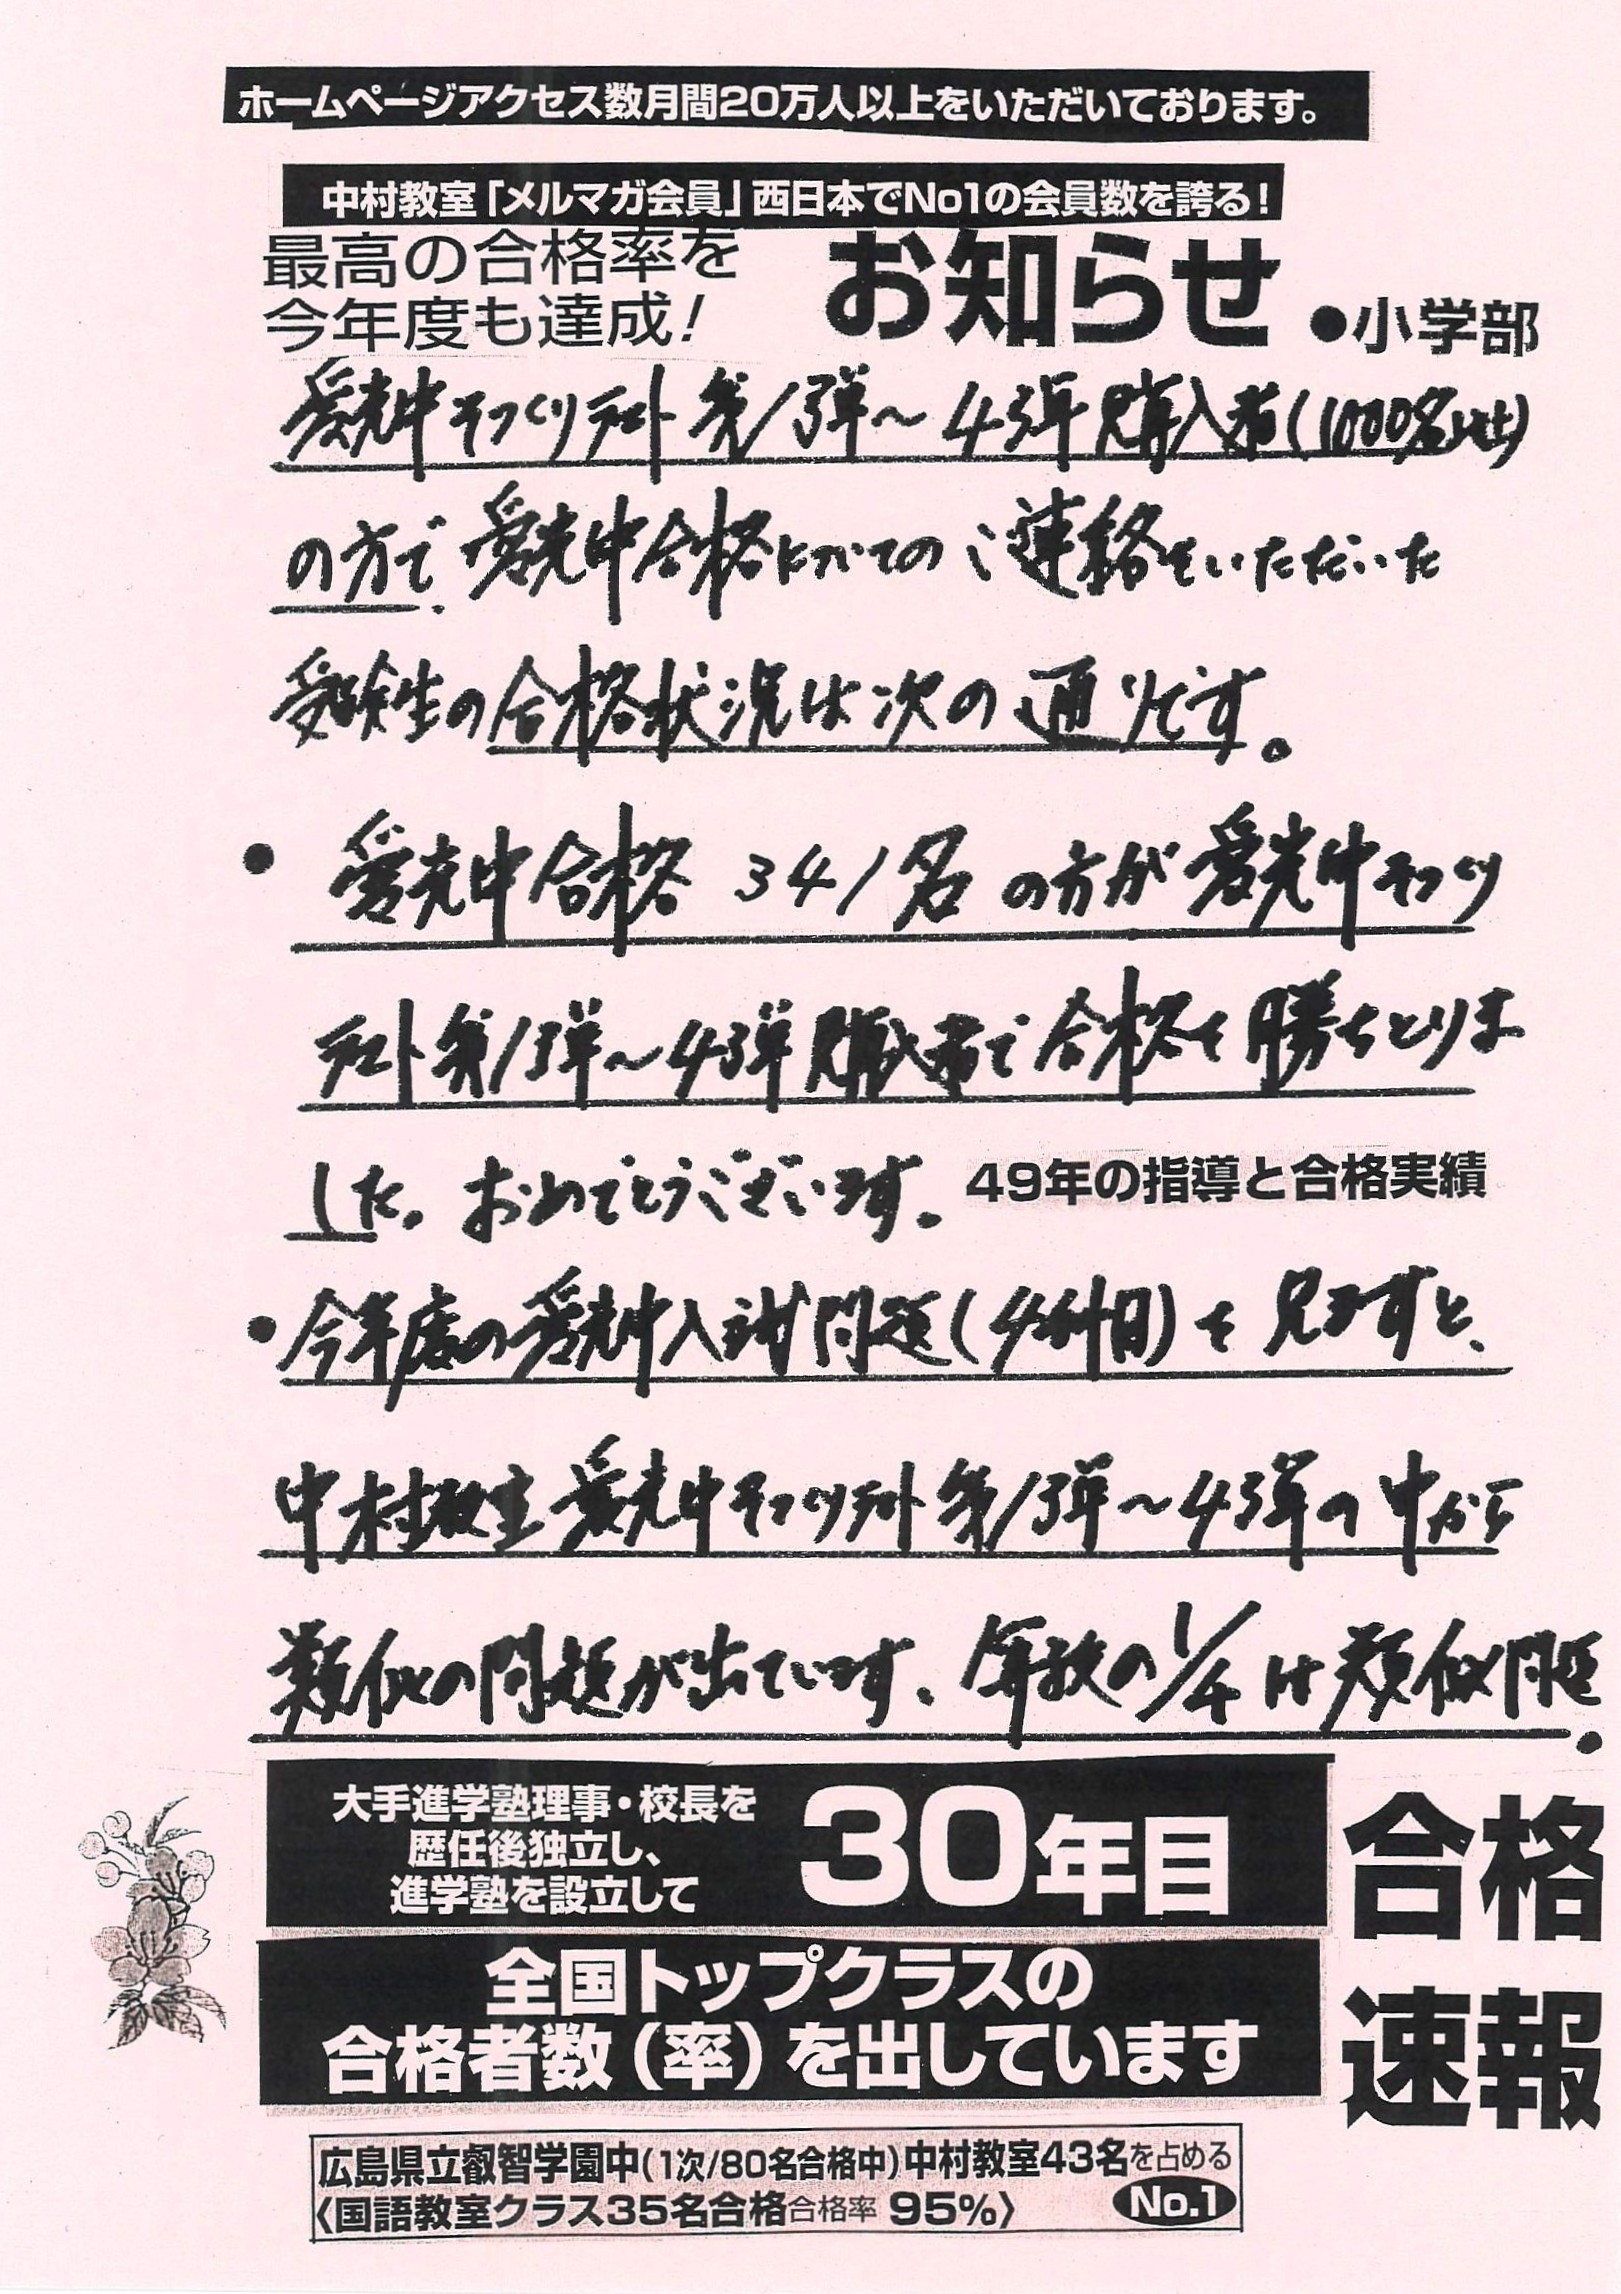 ホームページアクセス数月間20万人以上をいただいております。
中村教室「メルマガ会員」西日本でNo1の会員数を誇る!
最高の合格率を
今年度も達成!
お知らせ ●小学部
愛光中そっくりテスト第13弾〜43弾購入者(1000名以上)
の方で愛光中合格についてのご連絡をいただいた
受験生の合格状況は次の通りです。
● 愛光中合格 341名の方が愛光中そっくり
テスト第13弾〜43弾購入者で合格を勝ちとりま
した。おめでとうございます。
49年の指導と合格実績
●今年度の愛光中入試問題(4科目)を見ますと、
中村教室愛光中そっくりテスト第13弾〜43弾の中から
類似の問題が出ています。算数の1/4は類似問題。
大手進学塾理事・校長を
歴任後独立し、
進学塾を設立して
30年目
合格
速報
全国トップクラスの
合格者数(率)を出しています
広島県立叡智学園中(1次/80名合格中)中村教室43名を占める
〈国語教室クラス35名合格合格率 95%〉 No.1